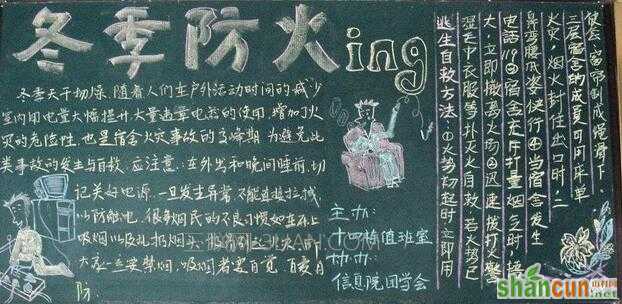 冬季防火ing
冬季天干物燥,随着人们在户外活动时间的减少
室内用电量大幅提升大量违章电器的使用,增加了火
灾的危险性,也是宿舍火灾事故的高峰期 为避免此
类事故的发生与自救 应注意:在外出和晚间睡前,切
记关好电源,一旦发生异常 不能直接拉拔
以防触电。很多烟民的不良习惯如在床上
吸烟以及扎扔烟头
大家一定要禁烟,吸烟者要自觉
防.
主办:
十四栋值班室
协办:
信息院团学会
逃生自救方法:①火势初起时 立即用
湿毛巾衣服等扑灭火自救 若火势已
大,立即撤离火场②迅速拨打火警
电话119③宿舍充斥大量烟气时,接
鼻弯腰低姿使行④当宿舍发生
火灾,烟火封住出口时,二
三层宿舍的成员可用床单
使会、窗帘制成绳滑下
shancun
山村网
.net